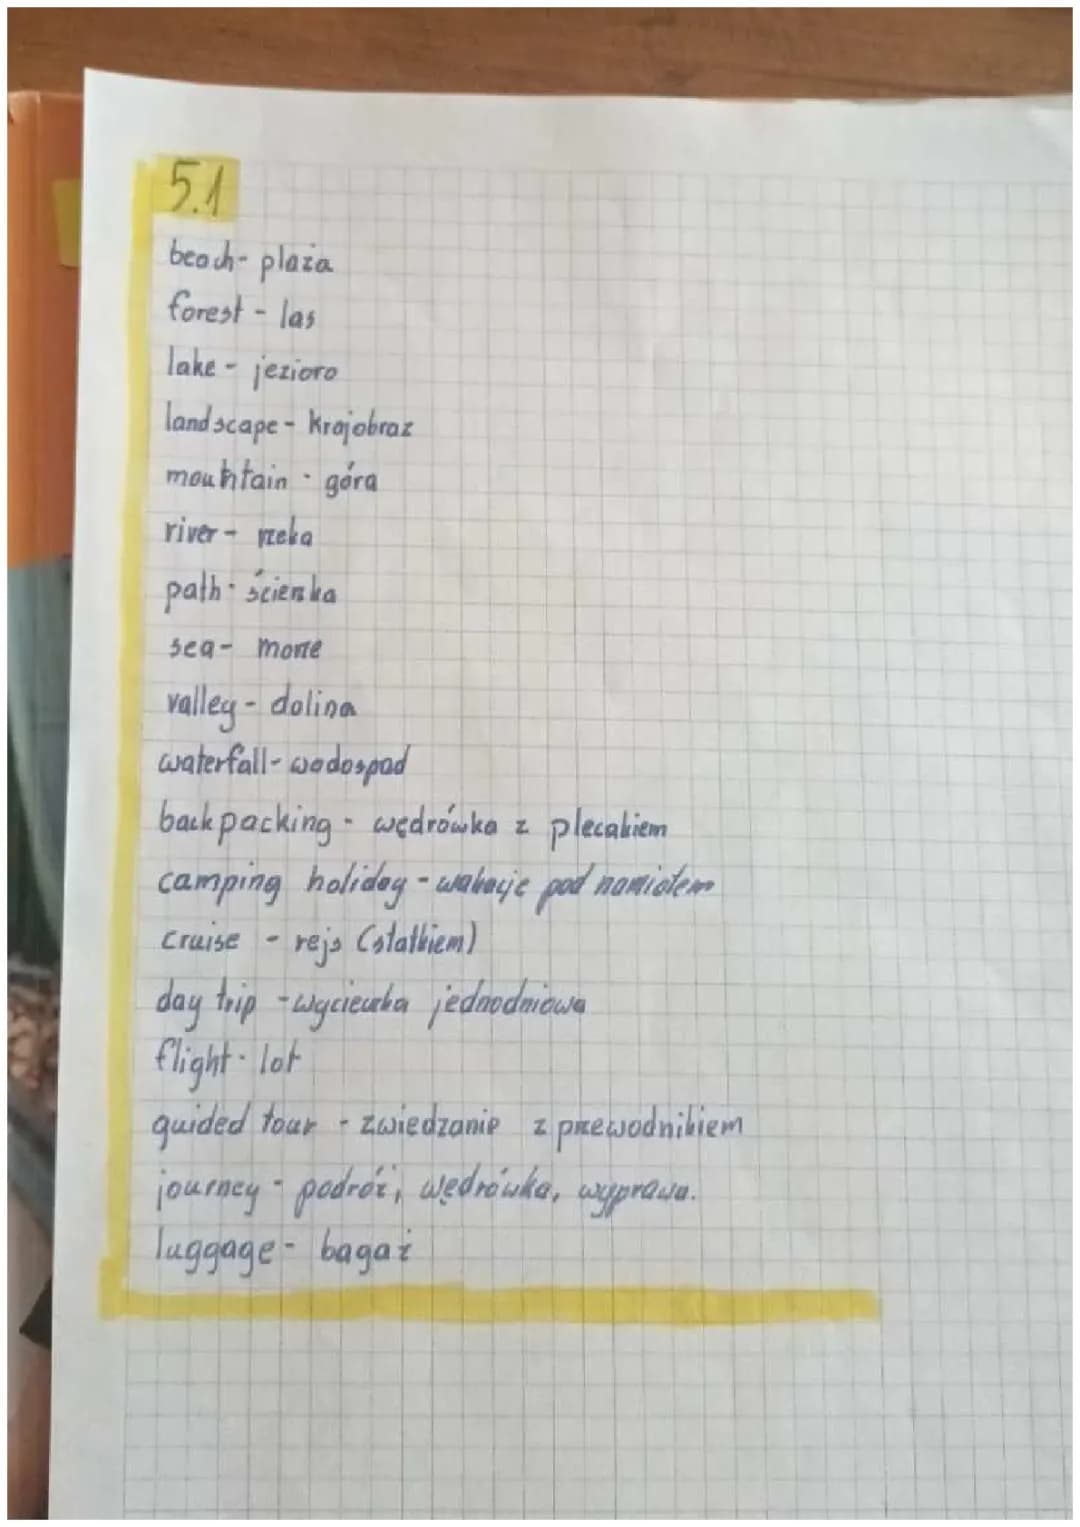 5.1
beach - plaża
forest - las
lake - jezioro
landscape - krajobraz
mountain - góra
river - rzeka
path - ścienka
sea - morze
valley - dolina
waterfall - wodospad
backpacking - wędrówka z plecakiem
camping holiday - wakacje pod namiotem
cruise - rejs (statkiem)
day trip - wycieczka jednodniowa
flight - lot
guided tour - zwiedzanie z przewodnikiem
journey - podróż, wędrówka, wyprawa.
luggage - bagaż